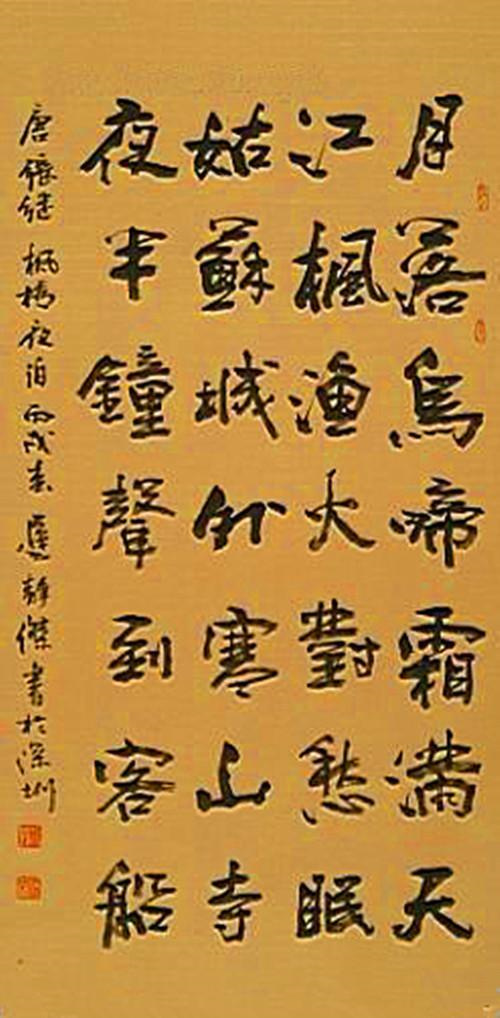 月落烏啼霜滿天
江楓漁火對愁眠
姑蘇城外寒山寺
夜半鐘聲到客船
唐張继楓橋夜泊丙戌春應靜傑書於深圳